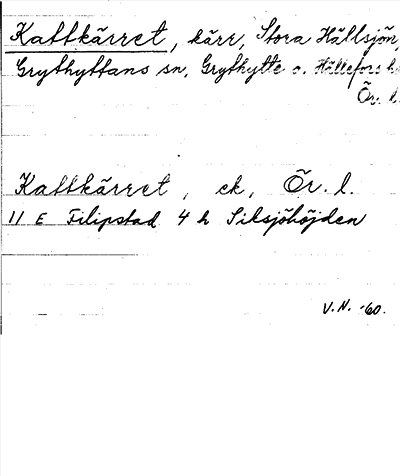 Kattkärret, kärr, Stora Hällsjön,
Grythyttans sn, Grythytte o. Hällefors h
Ör. l.
Kattkärret, ek, Ör. l.
11 E Filipstad 4 h Siksjöhöjden
V.N. -60.